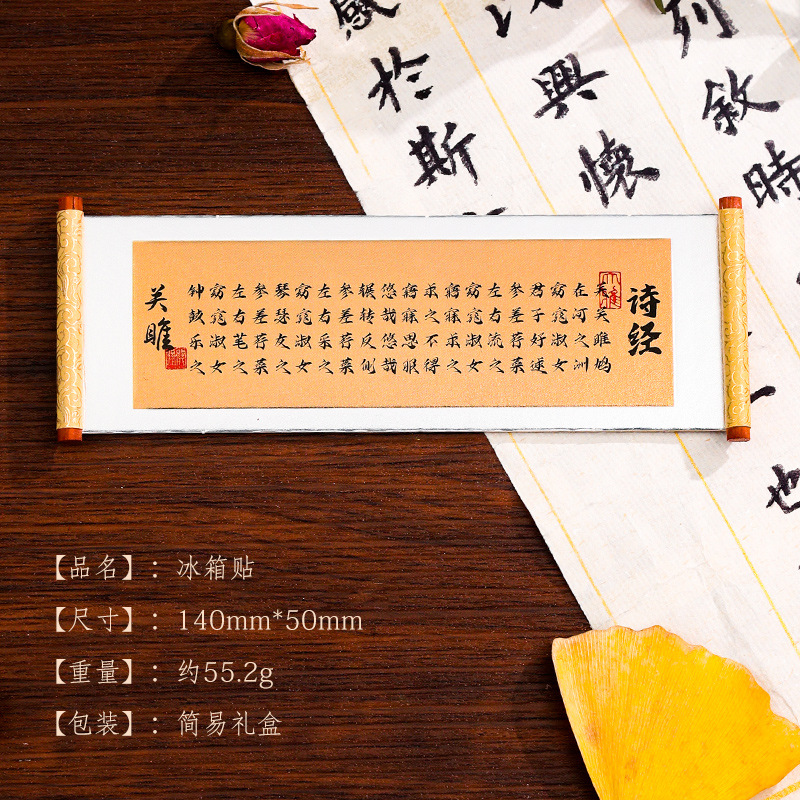 列敘時
興懷
也
感於斯
诗经
关关雎鸠
在河之洲
窈窕淑女
君子好逑
参差荇菜
左右流之
窈窕淑女
寤寐求之
求之不得
寤寐思服
悠哉悠哉
辗转反侧
参差荇菜
左右采之
窈窕淑女
琴瑟友之
参差荇菜
左右芼之
窈窕淑女
钟鼓乐之
关雎
【品名】：冰箱贴
【尺寸】：140mm*50mm
【重量】：约55.2g
【包装】：简易礼盒